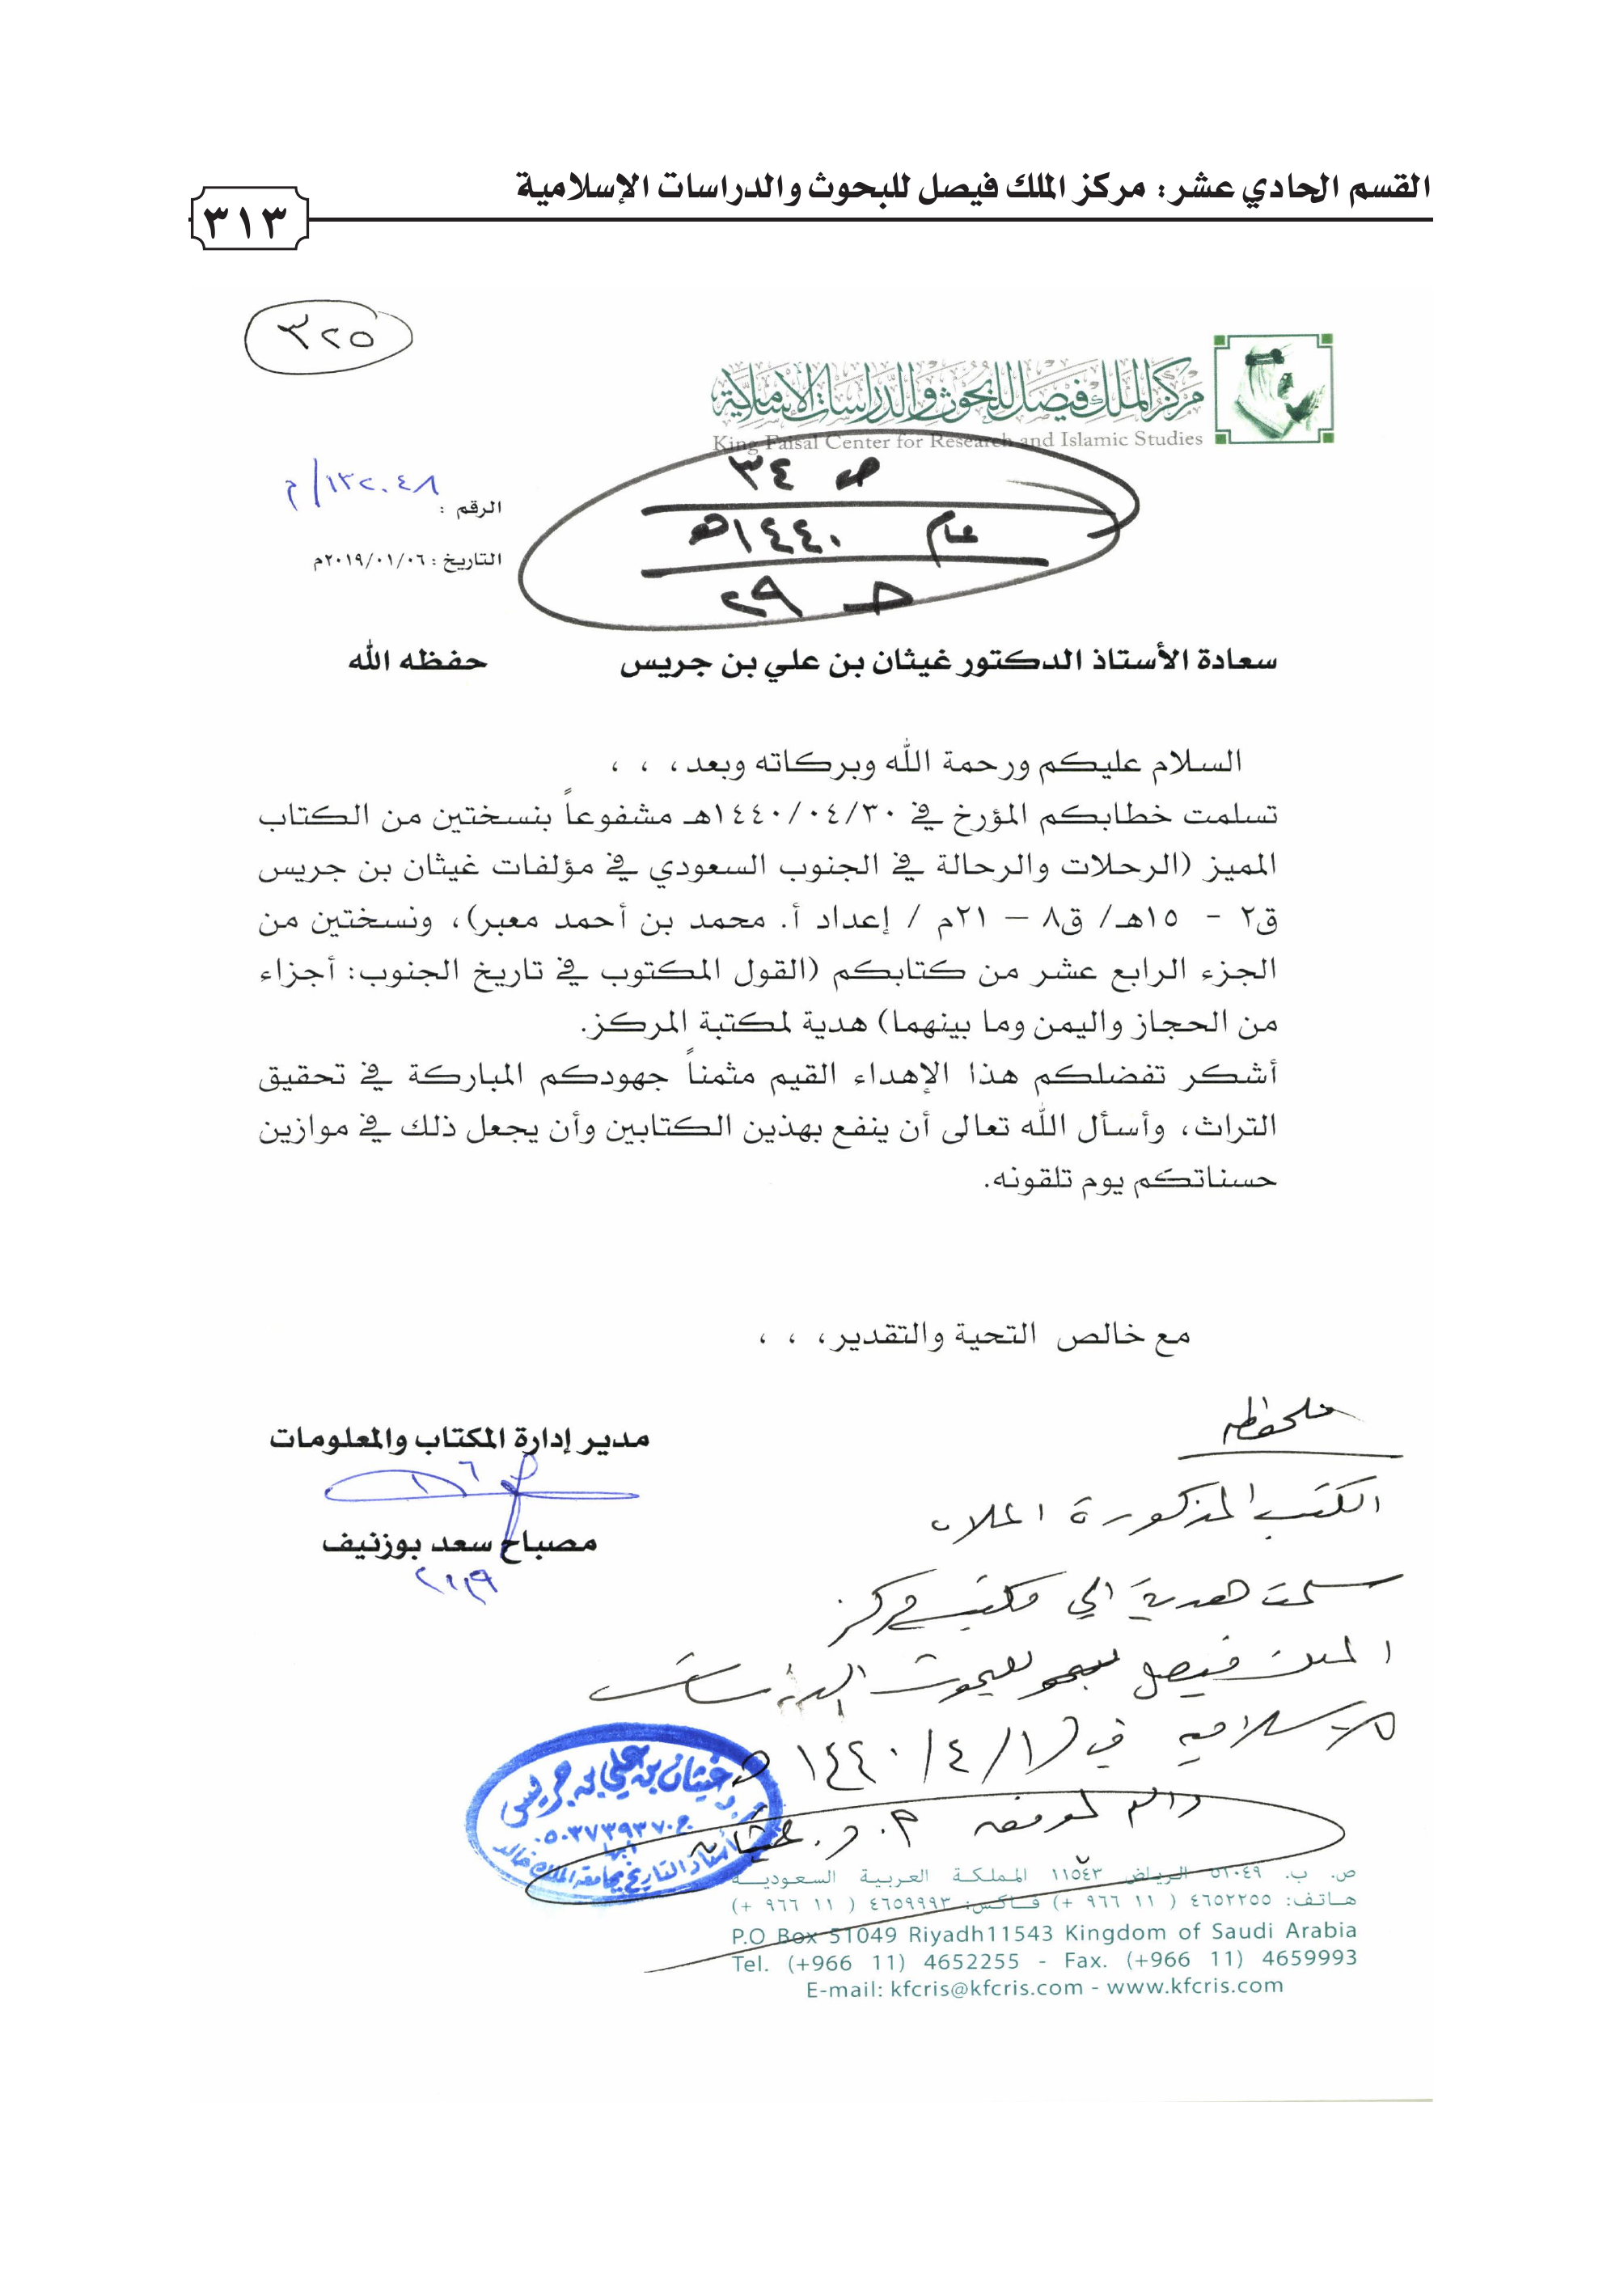 القسم الحادي عشر: مركز الملك فيصل للبحوث والدراسات الإسلامية
٣١٣
٣٢٥
مركز الملك فيصل للبحوث والدراسات الإسلامية
King Faisal Center for Research and Islamic Studies
ص ٣٤
عام ١٤٤٠هـ
ح ٢٩
الرقم : ١٣٢٠٤٨/م
التاريخ : ٢٠١٩/٠١/٠٦م
سعادة الأستاذ الدكتور غيثان بن علي بن جريس حفظه الله
السلام عليكم ورحمة الله وبركاته وبعد، ، ،
تسلمت خطابكم المؤرخ في ١٤٤٠/٠٤/٣٠هـ مشفوعاً بنسختين من الكتاب
المميز (الرحلات والرحالة في الجنوب السعودي في مؤلفات غيثان بن جريس
ق٢ - ١٥هـ/ ق٨ – ٢١م / إعداد أ. محمد بن أحمد معبر)، ونسختين من
الجزء الرابع عشر من كتابكم (القول المكتوب في تاريخ الجنوب: أجزاء
من الحجاز واليمن وما بينهما) هدية لمكتبة المركز.
أشكر تفضلكم هذا الإهداء القيم مثمناً جهودكم المباركة في تحقيق
التراث، وأسأل الله تعالى أن ينفع بهذين الكتابين وأن يجعل ذلك في موازين
حسناتكم يوم تلقونه.
مع خالص التحية والتقدير، ، ،
مدير إدارة المكتاب والمعلومات
مصباح سعد بوزنيف
ملحوظه
الكتب المذكورة اعلاه
سلمت هدية الى مكتبة مركز
الملك فيصل للبحوث الدراسات
الاسلاميه في / ٤ / ١٤٤٠ هـ
والله الموفق أ. د. غيثان
أ.د غيثان بن علي بن جريس
ج ٠٥٠٣٧٣٩٣٧٠
أبها
أستاذ التاريخ بجامعة الملك خالد
ص. ب. ٥١٠٤٩ الرياض ١١٥٤٣ المملكة العربية السعودية
هاتف: ٤٦٥٢٢٥٥ ( ١١ ٩٦٦ +) فاكس: ٤٦٥٩٩٩٣ ( ١١ ٩٦٦ +)
P.O Box 51049 Riyadh11543 Kingdom of Saudi Arabia
Tel. (+966 11) 4652255 - Fax. (+966 11) 4659993
E-mail: kfcris@kfcris.com - www.kfcris.com